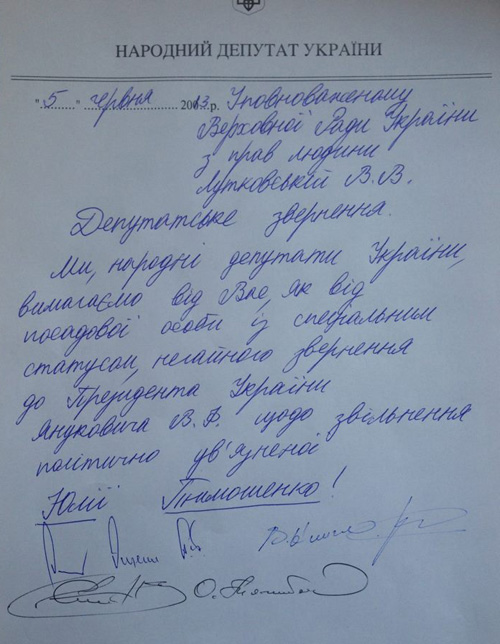 НАРОДНИЙ ДЕПУТАТ УКРАЇНИ
"5" червня 2013 р. Уповноваженому
Верховної Ради України
з прав людини
Лутковській В.В.
Депутатське звернення.
Ми, народні депутати України,
вимагаємо від Вас, як від
посадової особи із спеціальним
статусом, негайного звернення
до Президента України
Януковича В.Ф. щодо звільнення
політично ув'язненої
Юлії Тимошенко!